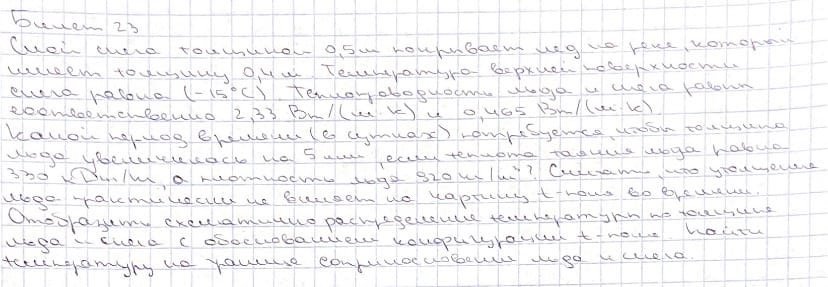 Билет 23
Слой снега толщиной 0,5м покрывает лёд на реке, который
имеет толщину 0,4м. Температура верхней поверхности
снега равна (-15°С). Теплопроводность льда и снега равны
соответственно 2,33 Вт/(м·к) и 0,465 Вт/(м·к).
Какой период времени (в сутках) потребуется, чтобы толщина
льда увеличилась на 5мм, если теплота таяния льда равна
330 кДж/м, а плотность льда 920 кг/м³? Считать, что утолщение
льда практически не влияет на картину t-поля во времени.
Отобразить схематично распределение температуры по толщине
льда и снега с обоснованием конфигурации t-поля. Найти
температуру на границе соприкосновения льда и снега.